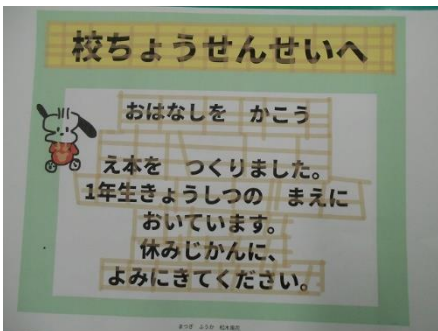 校ちょうせんせいへ
おはなしを　かこう
え本を　つくりました。
1年生きょうしつの　まえに
おいています。
休みじかんに、
よみにきてください。